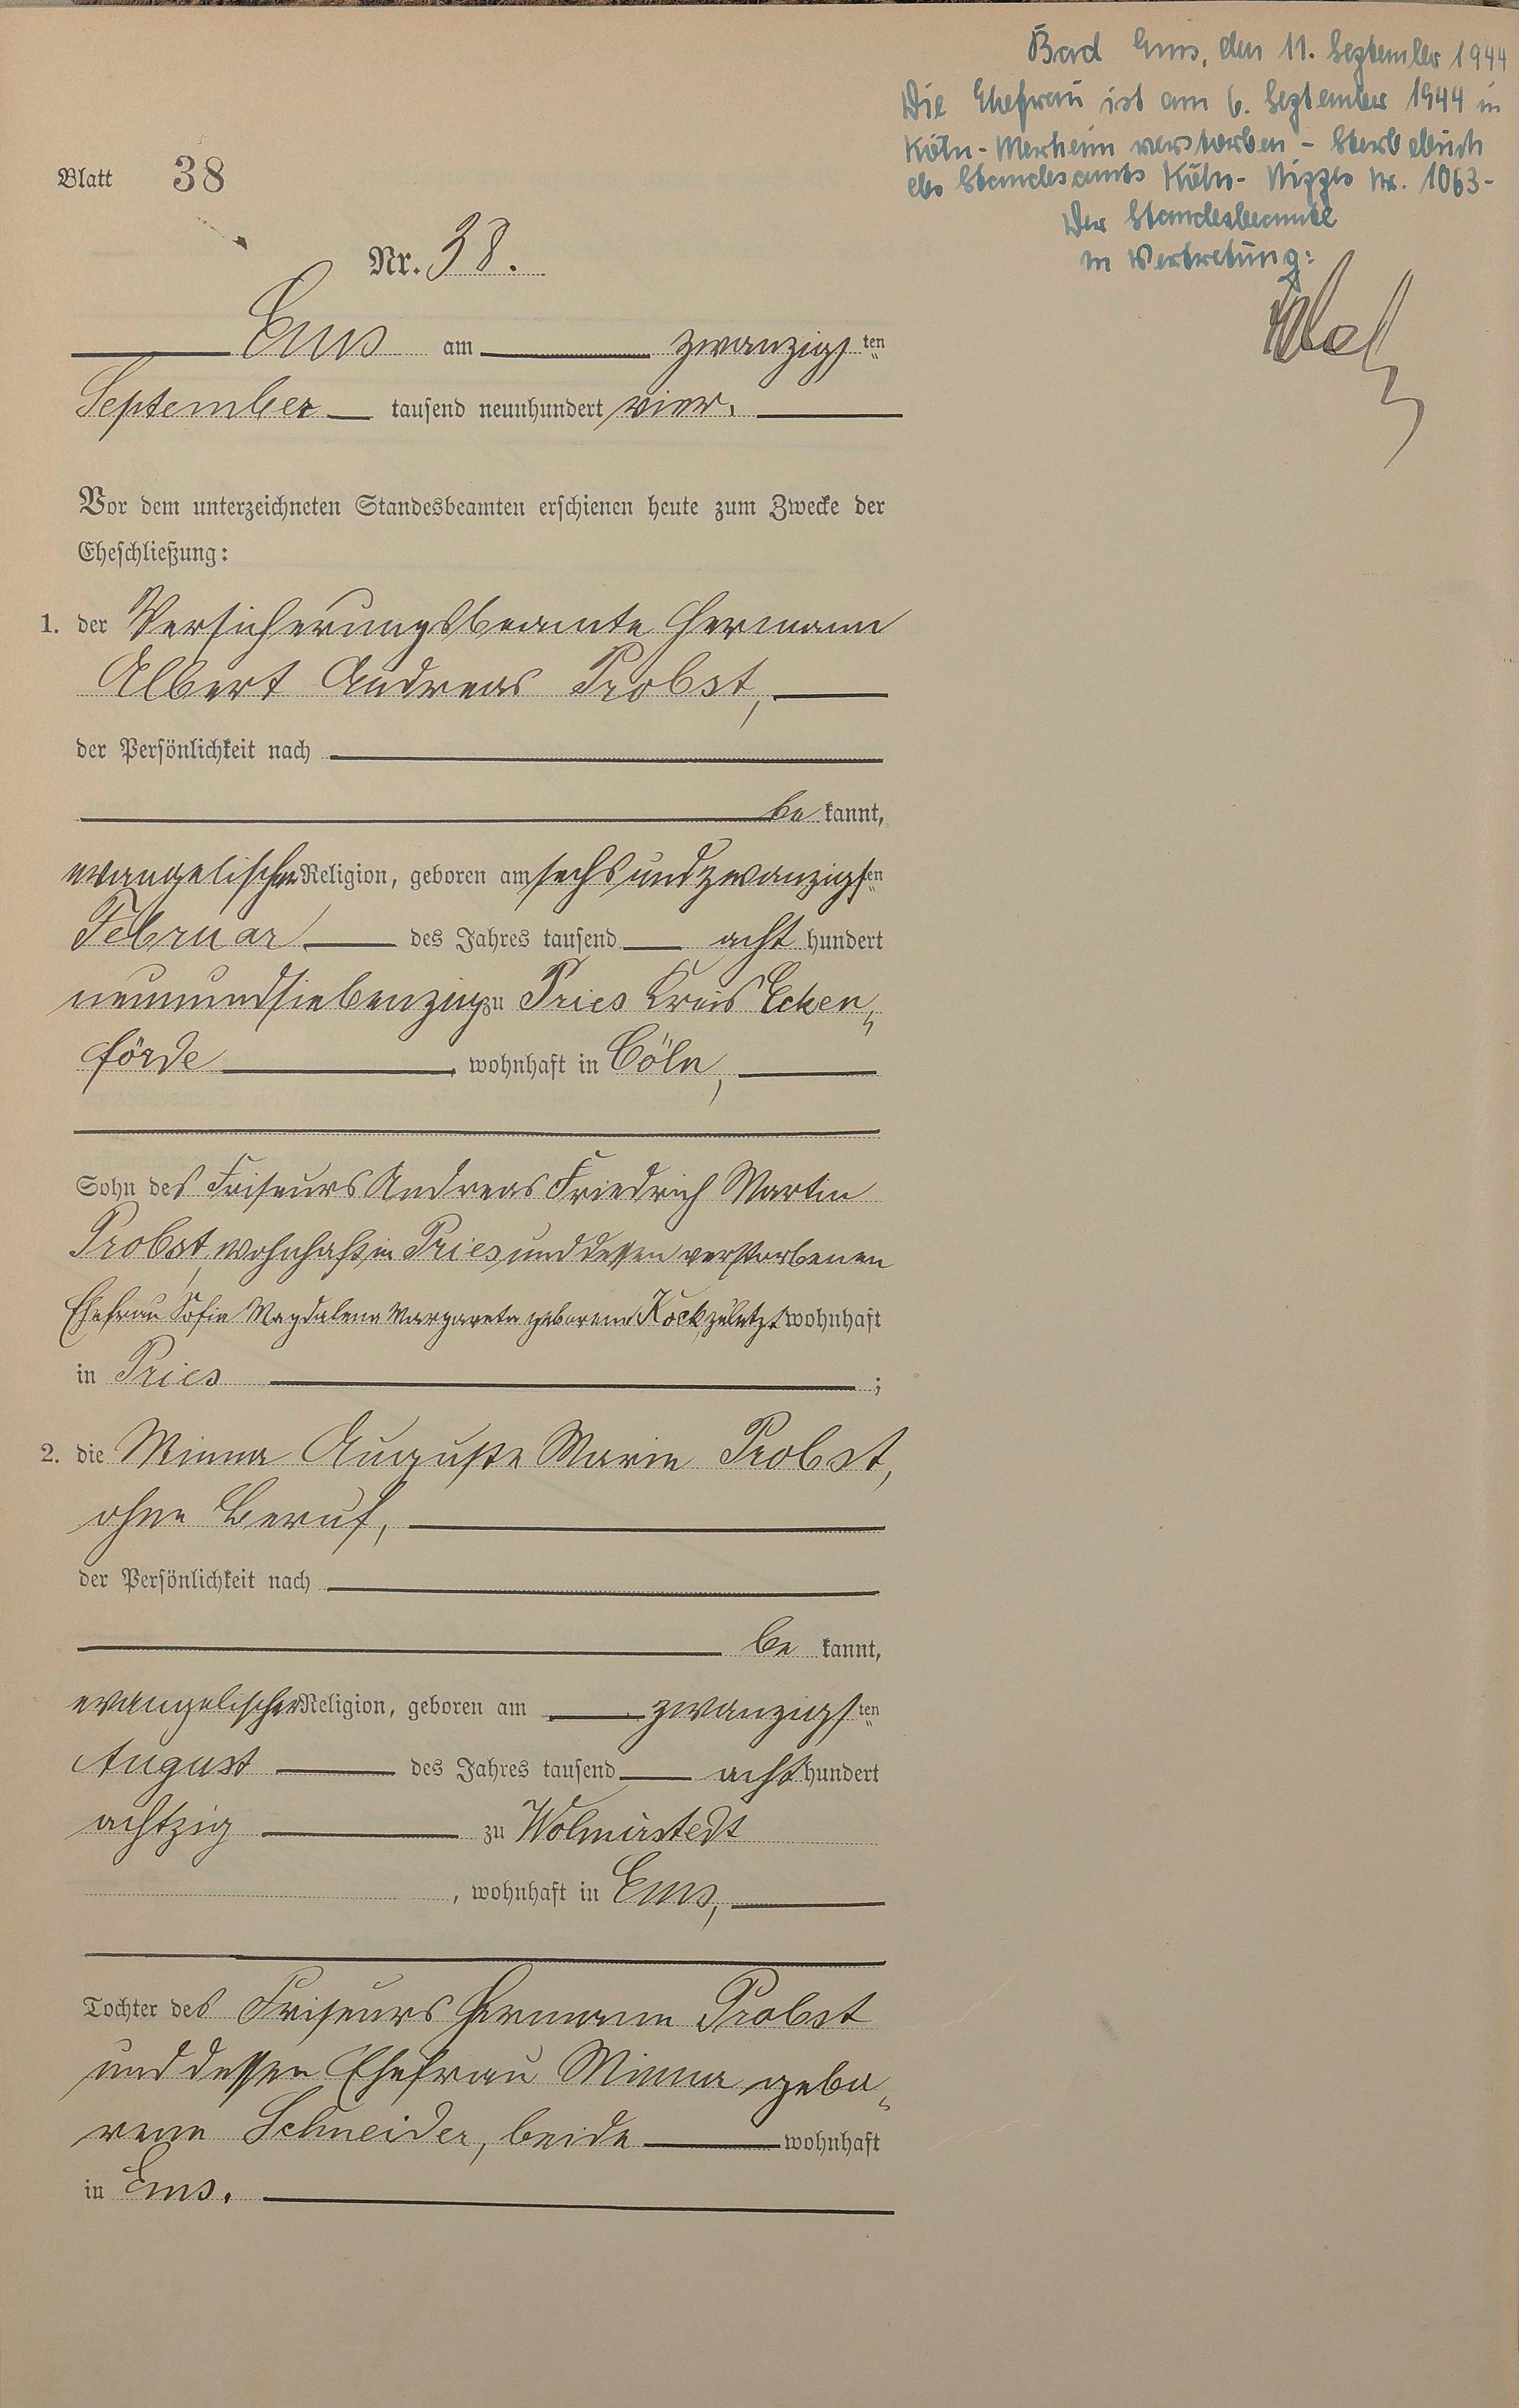 Bad Ems, den 11. September 1944
Die Ehefrau ist am 6. September 1944 in
Köln-Merheim verstorben - Sterbebuch
des Standesamts Köln-Nippes Nr. 1063-
Der Standesbeamte
in Vertretung:
Blatt 38
Nr. 38.
Ems am zwanzigsten
September tausend neunhundert vier.
Vor dem unterzeichneten Standesbeamten erschienen heute zum Zwecke der
Eheschließung:
1. der Versicherungsbeamte Hermann
Albert Andreas Probst,
der Persönlichkeit nach
be kannt,
evangelischer Religion, geboren am sechsundzwanzigsten
Februar des Jahres tausend acht hundert
neunundsiebenzig zu Pries Kreis Ecken„
förde, wohnhaft in Cöln,
Sohn des Friseurs Andreas Friedrich Martin
Probst, wohnhaft in Pries und dessen verstorbenen
Ehefrau Sofia Magdalena Margareta geborene Kock, zuletzt wohnhaft
in Pries ;
2. die Minna Auguste Marie Probst,
ohne Beruf,
der Persönlichkeit nach
be kannt,
evangelischer Religion, geboren am zwanzigsten
August des Jahres tausend acht hundert
achtzig zu Wolmirstedt
, wohnhaft in Ems,
Tochter des Friseurs Hermann Probst
und dessen Ehefrau Minna gebo„
rene Schneider, beide wohnhaft
in Ems.